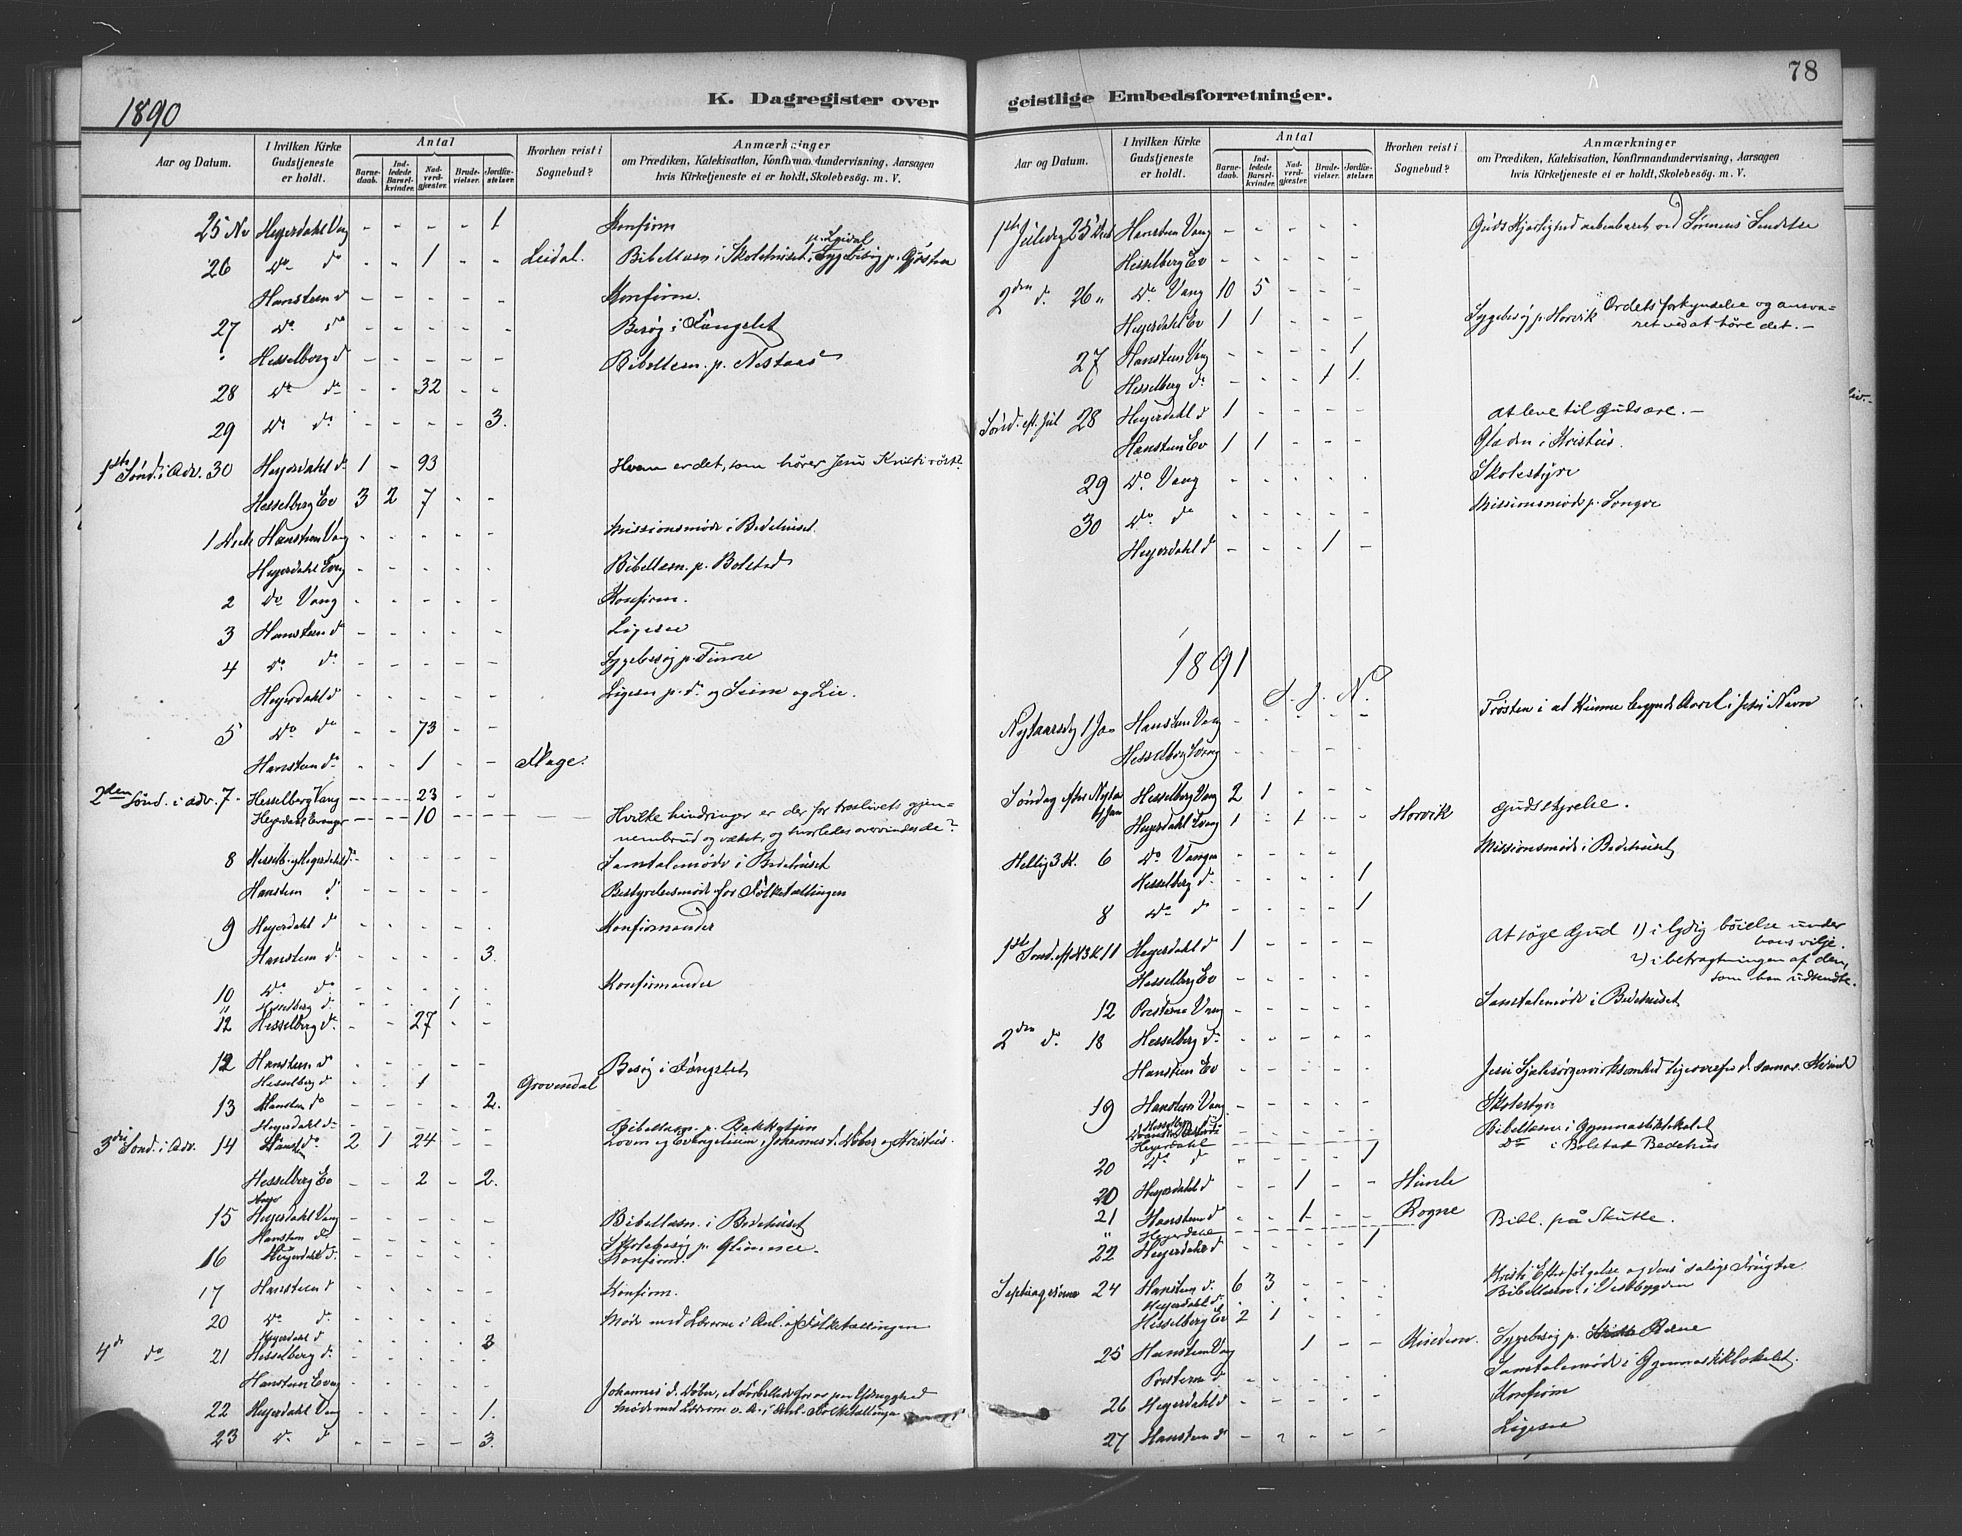 1890
K. Dagregister over
Aar og Datum.
I hvilken Kirke Gudstjeneste er holdt.
Antal
Barnedaab.
Indledede Barselkvinder.
Nadverdgjæster.
Brudevielser.
Jordfæstelser.
Hvorhen reist i Sognebud?
Anmærkninger
om Prædiken, Katekisation, Konfirmandundervisning, Aarsagen
hvis Kirketjeneste ei er holdt, Skolebesøg. m. V.
25 Nv Heyerdahl Vang - - - - 1 Konfirm
26 Do do - - 1 - - Leidal. Bibellæsn. i Skolehuset p. Leidal Sygebesøg p.
Hansteen d - - - - - Konfirm.
27 Do do - - - - - Besøg i Fængslet
Hesselberg d - - - - - Bibellæsn. p. Nestaas
28 do do - - 32 - -
29 do do - - - - 3.
1ste Sønd. i Adv. 30 Heyerdahl d. 1 - 93 Hvem er det, som hører Jesu Kristi røst?
Hesselberg Ev 3 2 7 - -
1 Dec Hansteen Vang - - - - - Missionsmøde i Bedehuset.
Heyerdahl Evang - - - - - Bibellæsn. p. Bolstad
2 Do Vang - - - - - Konfirm.
3 Hansteen d - - - - - Ligesaa
4 Do do - - - - - Sygebesøg p. Finne
Heyerdahl d - - - - - Ligesaa p. do og Seim og Lie.
5 Do do - - 73 - -
Hansteen do - - 1 - -
2den Sønd. i adv. 7 Hesselberg Vang - - 23 - -
Heyerdahl Evanger - - 10 - - Hvilke hindringer er der for troslivets gjen-
nembrud og vækst, og hvorledes overvindes de?
8 Hesselb. og Heyerdahl d. - - - - - Samtalemøde i Bedehuset
Hansteen d - - - - - Bestyrelsesmøde for Folketællingen
9 Heyerdahl d - - - - - Konfirmander
Hansteen d. - - - - 3.
10 Do do - - - - - Konfirmander
" Hesselberg d. - - - 1 -
12 Hesselberg d. - - 27 - -
12 Hansteen d - - - - - Besøg i Fængslet
Hesselberg d - - 1 Grovendal
13 Hansteen do - - - - 2.
Heyerdahl d. Bibellæsn. p. Bakketjen
3die Sønd. i Adv. 14 Hansteen do 2 1 24 - - Loven og Evangelium, Johannes d. Døber og Kristus.
Hesselberg Ev - - 2 - 2.
15 Heyerdahl Vang - - - - - Bibellæsn. i Bedehuset
Hansten do Skolebesøg p. Glimme.
16 Heyerdahl d. - - - - - Konfirm.
17 Hansteen d - - - - - Konfirm.
20 Do d - - - - - Møde med Lærerne i Anl. af Folketællingen
Heyerdahl d
4de do 21 Hesselberg d. - - - - 3
Hansteen Evang - - - - - Johannes d. Døber,
22 Heyerdahl Vang - - - - 1. Møde med Lærerne o. A. i Anl. Folketællinga
23 Do d - - - - 3.
78
geistlige Embedsforretninger.
Aar og Datum.
I hvilken Kirke Gudstjeneste er holdt.
Antal
Barnedaab.
Indledede Barselkvinder.
Nadverdgjæster.
Brudevielser.
Jordfæstelser.
Hvorhen reist i Sognebud?
Anmærkninger
om Prædiken, Katekisation, Konfirmandundervisning, Aarsagen
hvis Kirketjeneste ei er holdt, Skolebesøg. m. V.
1ste Juledag 25 Dec Hansteen Vang - - - - - Guds Kjærlighed aabenbaret ved Sønnens Sendelse
Hesselberg Ev - - - - -
2den d. 26 " Do Vang 10 5 - - -
Heyerdahl Ev 1 1 - - - Sygebesøg p. Horvik Ordets forkyndelse og ansva-
ret ved at høre det. -
27 Hansteen Vang - - - - 1
Hesselberg do - - - 1 1.
Sønd. eft. Jul 28 Heyerdahl d 1 - - - - At leve til Guds ære. -
Hansteen Ev 1 1 - - - Glæden i Kristus.
29 Do Vang - - - - - Skolestyre
30 Do do - - - - - Missionsmøde p. Longve
Heyerdahl d - - - 1 -
1891
I. J. N.
Nytaarsdag 1 Jan Hansteen Vang - - - - - Trøsten i at kunne begynde Aaret i Jesu Navn
Hesselberg Evang - - - - -
Søndag efter Nytaar 4 Jan Hesselberg Vang 2 1 - - - Gudsstyrelse.
Heyerdahl Evang 1 - 1 - - Horvik
Hellig 3 K. 6 Do Vangen - - - - - Missionsmøde i Bedehuset
Hesselberg d. - - - - 1
8 Do do - - - - 1
1ste Sønd. eft H3K 11 Heyerdahl d 1 - - - - At søge Gud 1) i lydig bøielse under
hans vilje.
2) i betragtningen af den,
som han udsendte.
Hesselberg Ev - - - - -
12 Presterne Vang - - - - - Samtalemøde i Bedehuset
2den d. 18 Hesselberg d. - - - - -
Hansteen Ev - - - - - Jesu Sjælesørgervirksomhed ligeoverfor d. samar. Kvinde
19 Hansteen Vang - - - - - Skolestyre
Bibellæsn. i Gymnastiklokalet
Heyerdahl Do i Bolstad Bedehus
20 Do do - - - - 1
20 Heyerdahl d - - 1 - - Himle
21 Hansteen d - - 1 - - Rogne
" Heyerdahl Bibl. på Skutle.
22 Heyerdahl d - - - - 1
Septuagesima 24 Hansteen d. 6 3 - - - Kristi Efterfølgelse og dens salige Frugter
Heyerdahl d. Bibellæsn. i Vestbygden
Hesselberg Ev 2 1 - - -
25 Hansteen Vang 1 - - Sygebesøg p.
Presterne d - - - - - Samtalemøde i Gymnastiklokalet.
26 Heyerdahl d - - - - - Konfirm
27 Hansteen d - - - - - Ligesaa